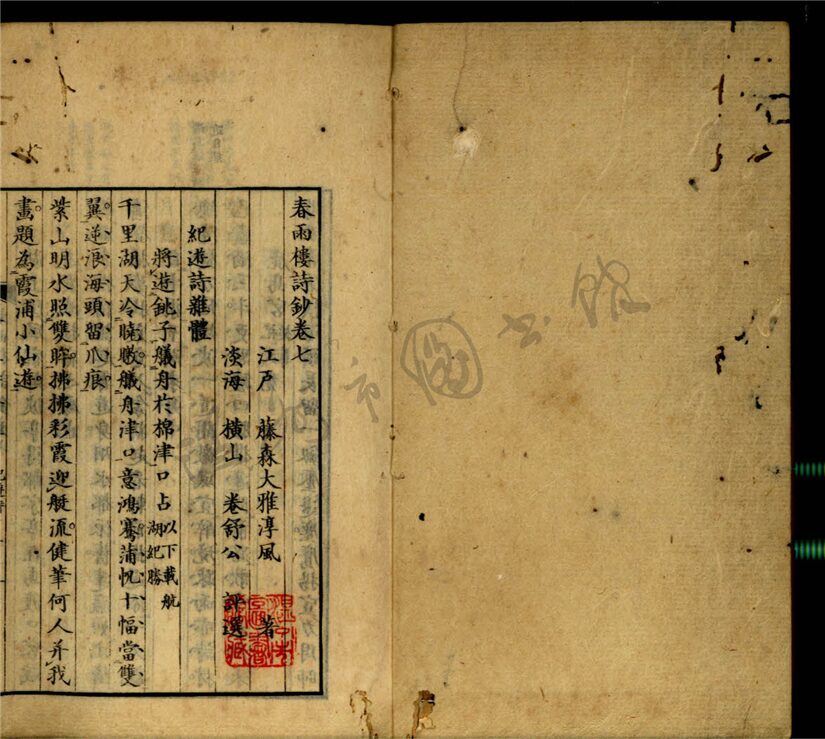 春雨樓詩鈔卷七
江戶　藤森大雅淳風　著
淡海　橫山　卷舒公　評選
紀遊詩雜體
將遊銚子艤舟於棉津口占以下載航湖紀勝
千里湖天冷曉暾艤舟津口意鴻騫蒲帆十幅當雙
翼逆浪海頭留爪痕
紫山明水照雙眸拂拂彩霞迎艇流健筆何人并我
畫題為霞浦小仙遊